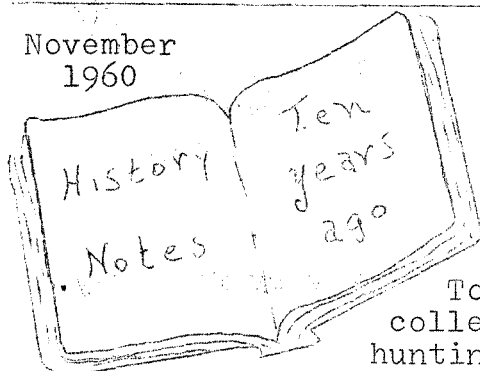 November
1960
History
Notes
Ten
years
ago
To
colle
huntin